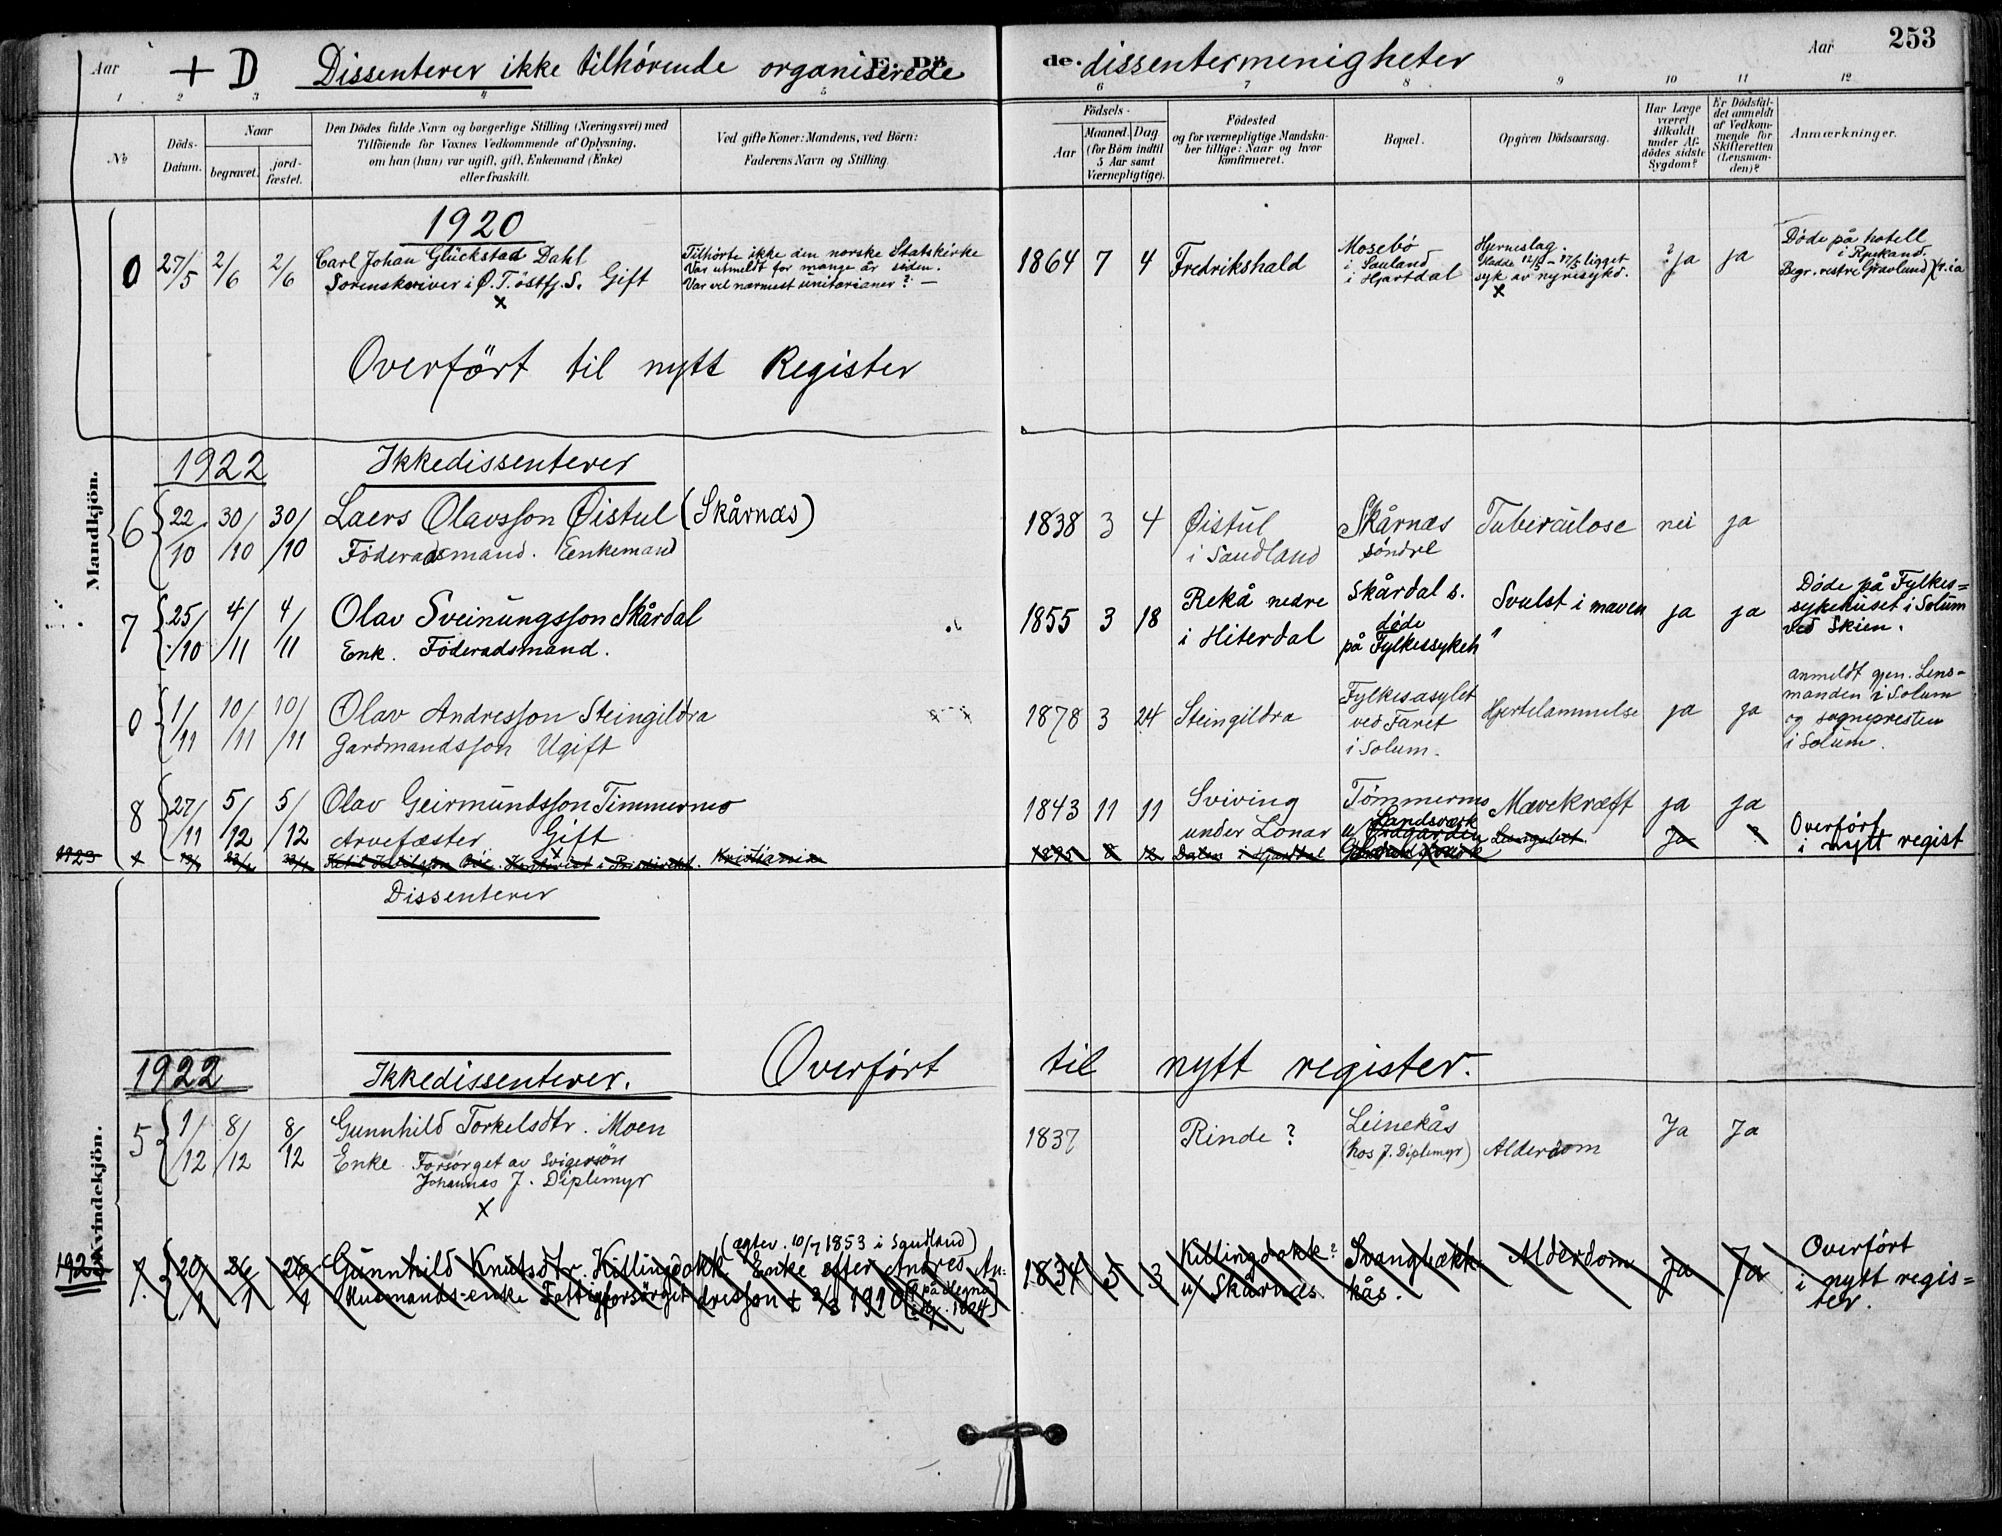 Aar + D Dissenterer ikke tilhørende organiserede E. Dö de. dissentermenigheter Aar 253
1 2 3 4 5 6 7 8 9 10 11 12
No
Döds-Datum.
Naar
begravet.
jord-fæstet.
Den Dödes fulde Navn og borgerlige Stilling (Næringsvei) med
Tilföiende for Voxnes Vedkommende af Oplysning,
om han (hun) var ugift, gift, Enkemand (Enke)
eller fraskilt.
Ved gifte Koner: Mandens, ved Börn:
Faderens Navn og Stilling.
Födsels-
Aar
Maaned. Dag.
(for Börn indtil
5 Aar samt
Værnepligtige).
Födested
og for værnepligtige Mandska-
ber tillige: Naar og hvor
konfirmeret.
Bopæl.
Opgiven Dödsaarsag.
Har Læge
været
tilkaldt
under Af-
dödes sidste
Sygdom?
Er Dödsfal-
det anmeldt
af Vedkom-
mende for
Skifteretten
(Lensman-
den)?
Anmærkninger.
Mandkjön.
1920
0 27/5 2/6 2/6 Carl Johan Glückstad Dahl
Sorenskriver i Ø. T. østfj. S. Gift
x
Tilhörte ikke den norske Statskirke
Var utmeldt for mange år siden.
Var vel nærmest unitarianer? —
1864 7 4 Fredrikshald
Mosebö
i Sauland
i Hjartdal
Hjerneslag.
Hadde 12/5 - 27/5 ligget
syk av nyresykd.
x
? Ja ja
Døde på hotell
i Rjukand.
Begr. vestre Gravlund
Overført til nytt Register
1922 Ikkedissenterer
6 22/10 30/10 30/10 Laers Olavsson Øistul (Skårnæs)
Föderadsmand. Enkemand
1838 3 4 Øistul
i Saudland
Skårnæs
søndre
Tuberculose nei ja
7 25/10 4/11 4/11 Olav Sveinungsson Skårdal
Enk. Föderadsmand.
1855 3 18 Rekå nedre
i Hiterdal
Skårdal s.
døde
på Fylkessykeh
Svulst i maven ja ja
Døde på Fylkes=
sykehuset i Solum
ved Skien.
0 1/11 10/11 10/11 Olav Andresson Steingildra
Gardmandsson Ugift
1878 3 24 Steingildra
Fylkesasylet
ved Faret
i Solum.
Hjertelammelse ja ja
anmeldt gjen. Lens=
manden i Solum
og sognepresten
i Solum.
8 27/11 5/12 5/12 Olav Geirmundsson Timmernes
Arvefæster Gift
x
1843 11 11 Sviving
under Lonar
Tømmernes
u/ Landsværk
Mavekræft ja ja
1923 x
Kristiania
1895 8
Ja ?
Overført
i nytt regist
Dissenterer
Kvindekjön.
1922 Ikkedissenterer. Overført til nytt register.
5 1/12 8/12 8/12 Gunnhild Torkelsdtr. Moen
Enke Forsørget av Svigersøn
Johannes J. Diplemyr
x
1837 Rinde ?
Leinekås
(hos J. Diplemyr)
Alderdom Ja Ja
(ægtev. 10/7 1853 i Saudland)
20/1 26/1 26/1 Gunnhild Knutsdtr. Killingdokk Enke efter Andres An=
Husmands-enke Fattigforsørget dresson + 2/3 1910
1834 5 3 Killingdokk?
u/ Skårnæs
Svangbækk
kås.
Alderdom Ja Ja
Overført
i nytt regis=
ter.